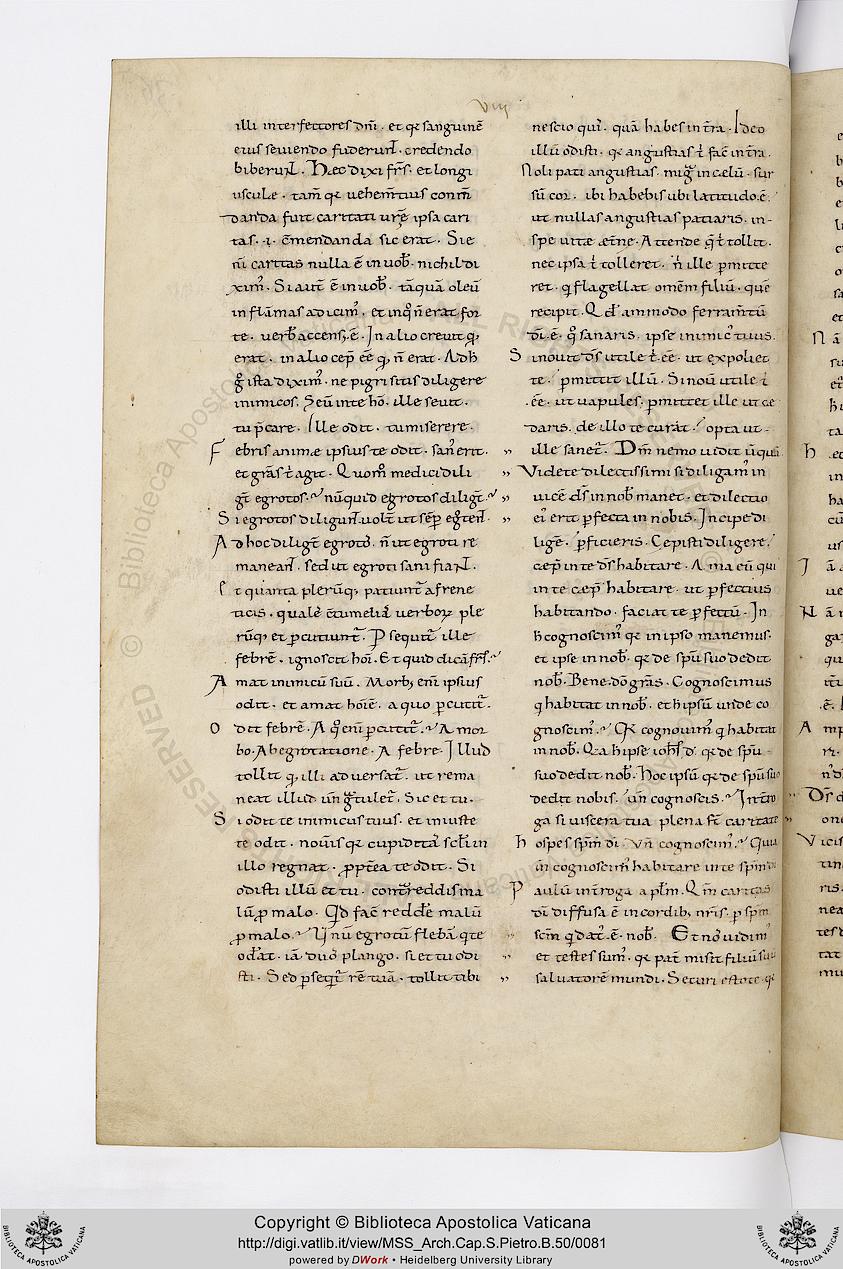 VIII
illi interfectores dnī · et qr sanguinē
eius seviendo fuderunt · credendo
biberunt · Hec dixi frs̄ · et longi
uscule · tam̄ qr vehem̄tius con
danda fuit caritati urē ipsa cari
tas · i · cm̄endanda sic erat · Si e
ni caritas nulla ē in uob̄ · nichil di
ximꝰ · Si aut̄ ē in uob̄ · tāquā oleū
in flāmas adicimꝰ · et in q̊ n̄ erat for
te · verb̄ accensꝰ ē · In alio crevit qꝫ
erat · in alio cep̄ ēē qꝫ n̄ erat · Ad h̄
g̊ ista diximꝰ · ne pigri sitis diligere
inimicos · Seuit in te hō · ille seuit ·
tu p̄care · Ille odit · tu miserere ·
Febris animæ ipsius te odit · sanꝰ erit ·
et gras̄ t̄ agit · Quom̄ medici dili
gt̄ egrotos · nūquid egrotos diligt̄
Si egrotos diligunt uolt̄ ut sēp egrotent ·
Ad hoc diligt̄ egrotos · n̄ ut egroti re
maneant · sed ut egroti sani fiant ·
Et quanta plerūqꝫ patiunt̄ a frene
ticis · quale c̄tumeliā verboꝝ ple
rūqꝫ et p̄cutiunt̄ · P sequit̄ ille
febrē · ignoscit hoī · Et quid dicā frs̄
Amat inimicū suū · Morbꝫ eni ipsius
odit · et amat hoīē · a quo p̄cutit̄ ·
Odit febrē · A q̊ eni p̄cutit̄ · A mor
bo · Ab egrotatione · A febre · Illud
tollit qꝫ illi adversat̄ · ut rema
neat illud un̄ gratulet̄ · Sic et tu ·
Si odit te inimicus tuus · et iniuste
te odit · noueris qr cupiditas scl̄i in
illo regnat · ꝓpt̄ea te odit · Si
odisti illū et tu · contra reddis ma
lū ꝓ malo · Qd fac̄ reddere malū
ꝓ malo · Unū egrotū flebā q te
oderat · iā duos plango · si et tu odi
sti · Sed p̄sequit̄ rē tuā · tollit tibi
nescio quiꝰ · quā habes in tr̄a · Ideo
illū odisti · qr angustias t̄ fac̄ in tr̄a ·
Noli pati angustias · migra in cælū · sur
sū cor · ibi habebis ubi latitudo ē ·
ut nullas angustias patiaris · in
spe uitæ æt̄ne · Attende q̄ t̄ tollit ·
nec ipsa t̄ tolleret · n̄ ille p̄mitte
ret · q flagellat omēm filiū · quē
recipit · Qd āmodo ferram̄tū
dī ē · q̊ sanaris · ipse inimicꝰ tuus ·
Si nouit ds̄ utile t̄ ēē · ut expoliet
te · p̄mittit illū · Si nou utile t̄
ēē · ut vapules · p̄mittet ille ut ce
daris · de illo te curat · opta ut
ille sanet̄ · Dm̄ nemo uidit ūquā
Videte dilectissimi si diligamꝰ in
uicē ds̄ in nob̄ manet · et dilectio
eiꝰ erit p̄fecta in nobis · Incipe di
ligē · p̄ficieris · Cepisti diligere ·
cep̄ in te ds̄ habitare · Ama eū qui
in te cep̄ habitare · ut p̄fectius
habitando · faciat te p̄fectū · In
h̄ cognoscimꝰ qr in ipso manemus ·
et ipse in nob̄ · qr de spū suo dedit
nob̄ · Bene · dō grās · Cognoscimus
q habitat in nob̄ · et h̄ ipsū unde co
gnoscimꝰ · Qr cognouimꝰ q habitat
in nob̄ · Qa h̄ ipse iohs̄ d̄ · qr de spū
suo dedit nob̄ · hoc ipsū qr de spū suo
dedit nobis · un̄ cognoscis · Int̄ro
ga si viscera tua plena st̄ caritate
hospes spm̄ dī · Un̄ cognoscimꝰ · Quia
in cognoscimꝰ habitare in te spm̄ dī
Paulū int̄roga aplm̄ · Qm̄ caritas
dī diffusa ē in cordibꝫ nrīs · p spm̄
scm̄ q datꝰ ē nob̄ · Et nos uidimꝰ
et testes sumꝰ · qr pat̄ misit filiū suū
salvatorē mundi · Securi estote · qr
Copyright © Biblioteca Apostolica Vaticana
http://digi.vatlib.it/view/MSS_Arch.Cap.S.Pietro.B.50/0081
powered by DWork • Heidelberg University Library